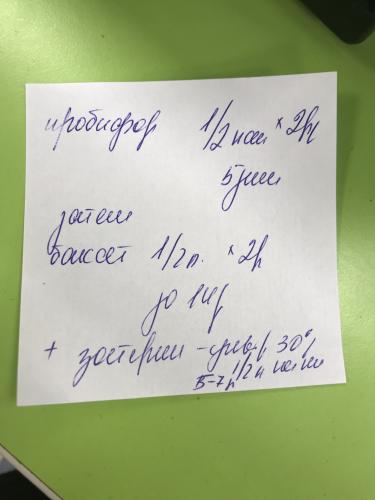 пробифор 1/2 пак * 2 р
5 дней
затем
баксет 1/2 п. * 2 р
до 14 д
+ зостерин - ультра 30%
5-7 д 1/2 п на ночь